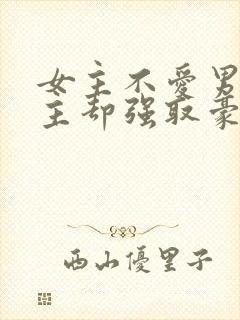 女主不愛男
主却强取豪
西山優里子